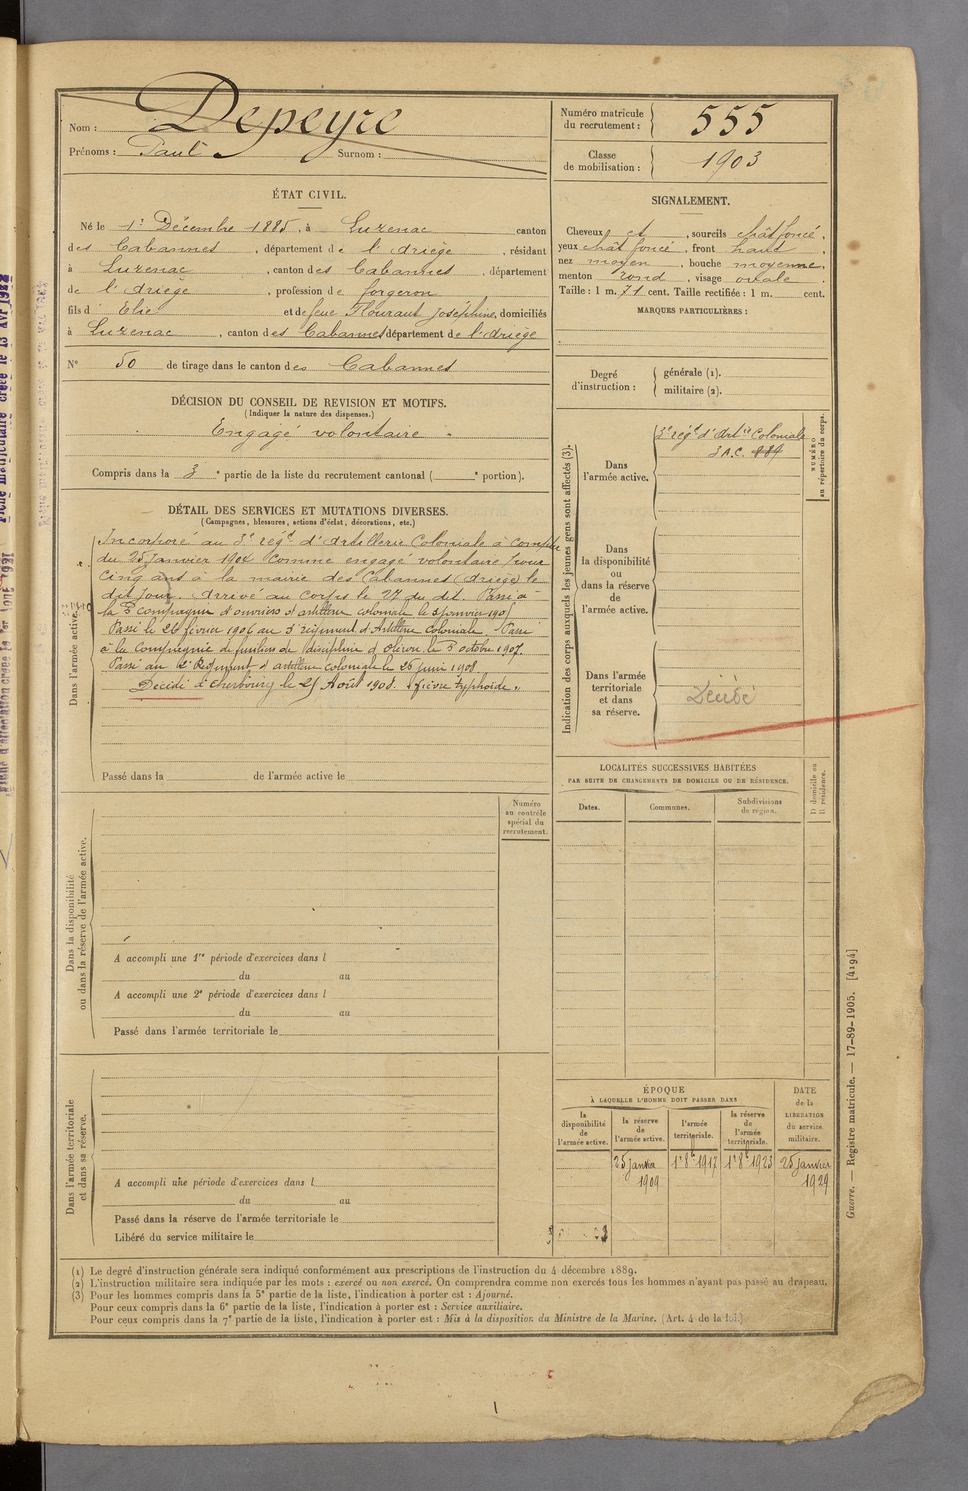 Nom : Depeyre
Prénoms : Paul Surnom :
Numéro matricule du recrutement : 555
Classe de mobilisation : 1903
ÉTAT CIVIL.
Né le 1er Décembre 1885, à Luzenac canton
des Cabannes, département de l'Ariège, résidant
à Luzenac, canton des Cabannes, département
de l'Ariège, profession de forgeron
fils d' Elie et de feue Flouraut Joséphine, domiciliés
à Luzenac, canton des Cabannes département de l'Ariège
N° 50 de tirage dans le canton des Cabannes
SIGNALEMENT.
Cheveux et, sourcils chât foncé,
yeux chât foncé, front haut,
nez moyen, bouche moyenne,
menton rond, visage ovale.
Taille : 1 m. 71 cent. Taille rectifiée : 1 m. cent.
MARQUES PARTICULIÈRES :
Degré d'instruction : générale (1).
militaire (2).
DÉCISION DU CONSEIL DE REVISION ET MOTIFS.
(Indiquer la nature des dispenses.)
Engagé volontaire.
Compris dans la 3e partie de la liste du recrutement cantonal ( e portion).
DÉTAIL DES SERVICES ET MUTATIONS DIVERSES.
(Campagnes, blessures, actions d'éclat, décorations, etc.)
Dans l'armée active.
Incorporé au 3e régt d'Artillerie Coloniale à compter
du 25 Janvier 1904 comme engagé volontaire pour
cinq ans à la mairie des Cabannes (Ariège) le
dit jour. Arrivé au corps le 27 du dit. Passé à
la 3e compagnie d'ouvriers d'artillerie coloniale le 3 janvier 1905
Passé le 26 février 1906 au 3e régiment d'Artillerie Coloniale. Passé
à la Compagnie de fusiliers de discipline d'Oléron le 3 octobre 1907.
Passé au 2e Régiment d'artillerie coloniale le 26 juin 1908
Décédé à Cherbourg le 25 Août 1908. "fièvre typhoïde"
Passé dans la de l'armée active le
Indication des corps auxquels les jeunes gens sont affectés (3).
NUMÉRO au répertoire du corps.
Dans l'armée active.
3e régt d'Artie Coloniale
3 A.C. 884
Dans la disponibilité ou dans la réserve de l'armée active.
Dans l'armée territoriale et dans sa réserve.
Décédé
LOCALITÉS SUCCESSIVES HABITÉES
PAR SUITE DE CHANGEMENTS DE DOMICILE OU DE RÉSIDENCE.
Dates. Communes. Subdivisions de région. D domicile ou R résidence.
Dans la disponibilité ou dans la réserve de l'armée active.
Numéro au contrôle spécial du recrutement.
A accompli une 1re période d'exercices dans l
du au
A accompli une 2e période d'exercices dans l
du au
Passé dans l'armée territoriale le
Dans l'armée territoriale et dans sa réserve.
A accompli une période d'exercices dans l
du au
Passé dans la réserve de l'armée territoriale le
Libéré du service militaire le
ÉPOQUE
À LAQUELLE L'HOMME DOIT PASSER DANS
la disponibilité de l'armée active.
la réserve de l'armée active.
l'armée territoriale.
la réserve de l'armée territoriale.
DATE de la LIBÉRATION du service militaire.
25 Janvier 1909
1er 8bre 1917
1er 8bre 1923
25 Janvier 1929
(1) Le degré d'instruction générale sera indiqué conformément aux prescriptions de l'instruction du 4 décembre 1889.
(2) L'instruction militaire sera indiquée par les mots : exercé ou non exercé. On comprendra comme non exercés tous les hommes n'ayant pas passé au drapeau.
(3) Pour les hommes compris dans la 5e partie de la liste, l'indication à porter est : Ajourné.
Pour ceux compris dans la 6e partie de la liste, l'indication à porter est : Service auxiliaire.
Pour ceux compris dans la 7e partie de la liste, l'indication à porter est : Mis à la disposition du Ministre de la Marine. (Art. 4 de la loi.)
Guerre. — Registre matricule. — 17-89-1905. [4194]